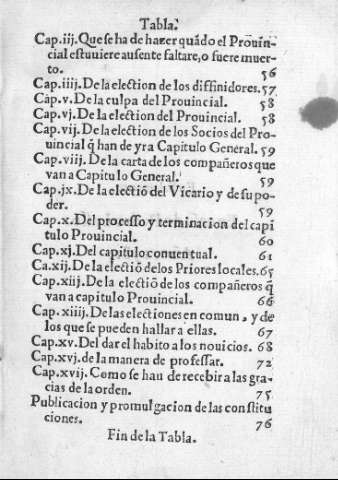 Tabla.
Cap.iij. Que se ha de hazer quãdo el Prouin-
cial estuuiere ausente faltare, o fuere muer-
to. 56
Cap.iiij. De la election de los diffinidores. 57
Cap.v. De la culpa del Prouincial. 58
Cap.vj. De la election del Prouincial. 58
Cap.vij. De la election de los Socios del Pro-
uincial q̃ han de yr a Capitulo General. 59
Cap.viij. De la carta de los compañeros que
van a Capitulo General. 59
Cap.jx. De la electiõ del Vicario y de su po-
der. 59
Cap.x. Del processo y terminacion del capi
tulo Prouincial. 60
Cap.xj. Del capitulo conuentual. 61
Ca.xij. De la electiõ de los Priores locales. 65
Cap.xiij. De la electiõ de los compañeros q̃
van a capitulo Prouincial. 66
Cap.xiiij. De las electiones en comun, y de
los que se pueden hallar a ellas. 67
Cap.xv. Del dar el habito a los nouicios. 68
Cap.xvj. de la manera de professar. 72
Cap.xvij. Como se han de recebir a las gra-
cias de la orden. 75
Publicacion y promulgacion de las constitu
ciones. 76
Fin de la Tabla.